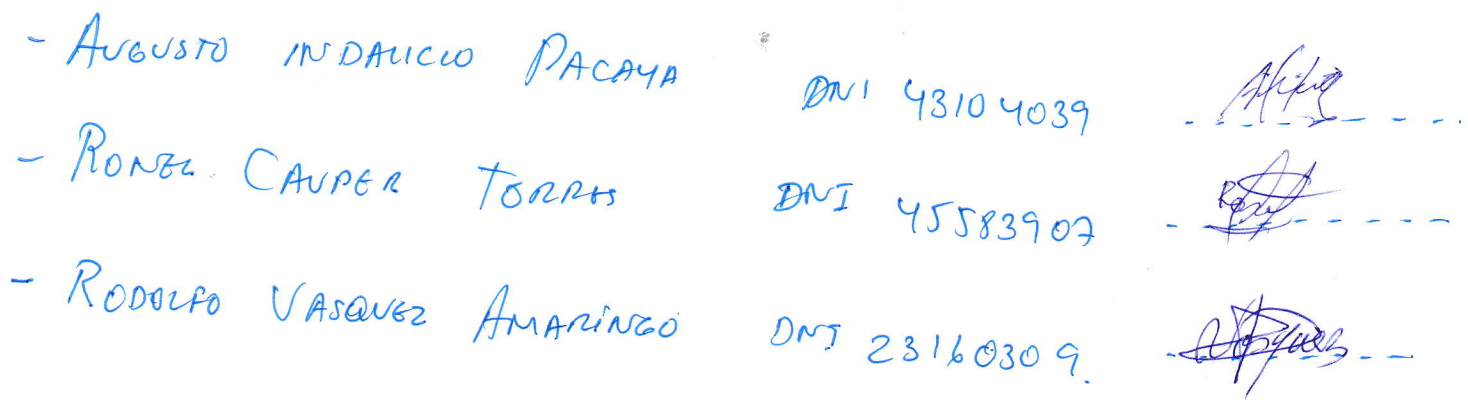 - AUGUSTO INDALICIO PACAYA DNI 43104039
- RONEL CAUPER TORRES DNI 45583907
- RODOLFO VASQUEZ AMARÍNGO DNI 23160309.